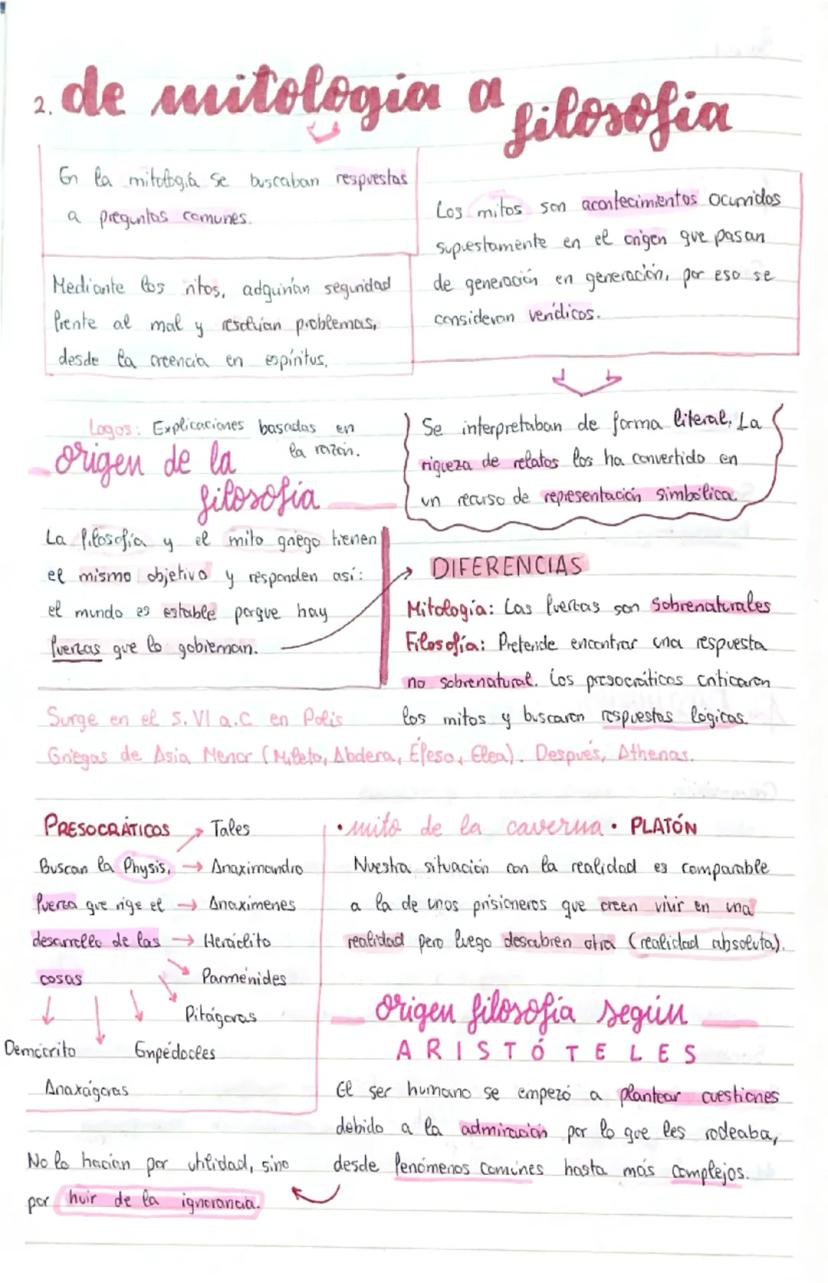 2. de mitología a
filosofía
En la mitología se buscaban respuestas
a preguntas comunes.
Mediante los ritos, adquirían seguridad
frente al mal y resolvían problemas,
desde la creencia en espíritus.
Los mitos son acontecimientos ocurridos
supuestamente en el origen que pasan
de generación en generación, por eso se
consideran verídicos.
Se interpretaban de forma literal. La
riqueza de relatos los ha convertido en
un recurso de representación simbólica.
Logos: Explicaciones basadas en
la razón.
origen de la
filosofía
La filosofía y el mito griego tienen
el mismo objetivo y responden así:
el mundo es estable porque hay
fuerzas que lo gobiernan.
DIFERENCIAS
Mitología: Las fuerzas son sobrenaturales
Filosofía: Pretende encontrar una respuesta
no sobrenatural. Los presocráticos criticaron
los mitos y buscaron respuestas lógicas.
Surge en el S. VI a.C en Polis
Griegas de Asia Menor (Mileto, Abdera, Éfeso, Elea). Después, Athenas.
PRESOCRÁTICOS → Tales
Buscan la Physis, → Anaximandro
fuerza que rige el → Anaxímenes
desarrollo de las → Heráclito
cosas
Parménides
Pitágoras
Demócrito
Empédocles
Anaxágoras
· mito de la caverna · PLATÓN
Nuestra situación con la realidad es comparable
a la de unos prisioneros que creen vivir en una
realidad pero luego descubren otra (realidad absoluta).
origen filosofía según
ARISTÓTELES
El ser humano se empezó a plantear cuestiones
debido a la admiración por lo que les rodeaba,
desde fenómenos comunes hasta más complejos.
No lo hacían por utilidad, sino
por huir de la ignorancia.